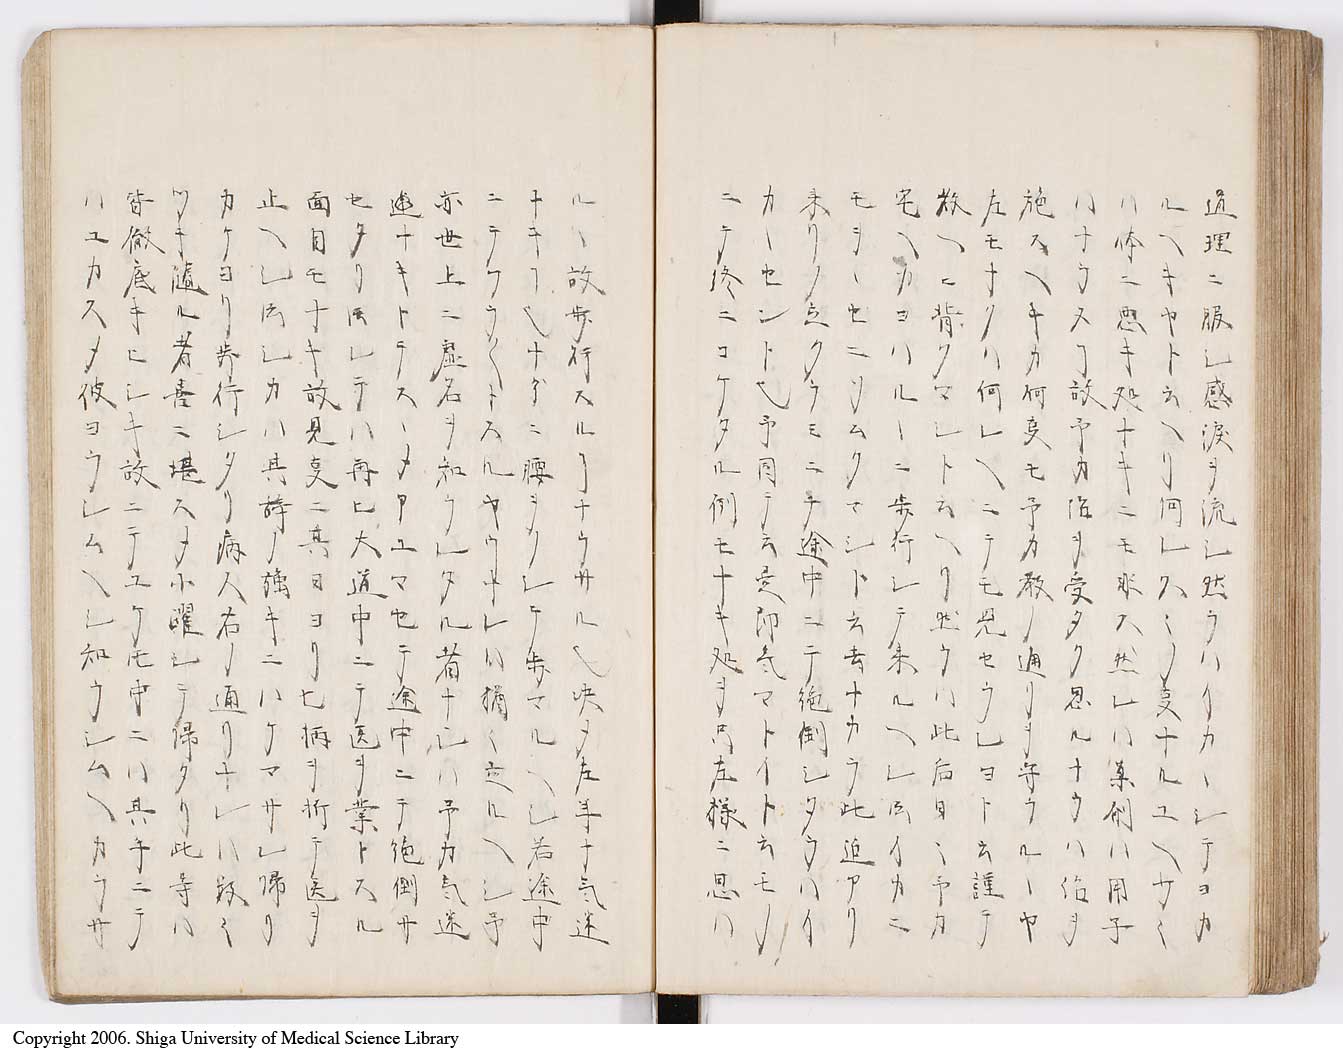 道理ニ服シ感涙ヲ流シ然ラハイカーシテヨカ
ルヘキヤト云ヘリ何レスミノ変ナルユヘサく
ハ体ニ悪キ処ナキニモ非ス然レハ薬剤ハ用子
ハナラヌヿ故予カ治ヲ受タク思ルナラハ治ヲ
施スヘキカ何変モ予カ教ノ通リヲ守ラルーヤ
左モナクハ何レヘニテモ見セラレヨト云謹テ
教ヘニ背クマシト云ヘリ然ラハ此后日ミ予カ
宅ヘカヨハルーニ歩行シテ来ルヘシ云イカニ
モヲーセニソムクマシト云去ナカラ此迫アリ
来リノ立クラミニテ途中ニテ絶倒シタラハイ
カーセント也予同テ云是即気マトイト云モノ
ニテ終ニコケタル例モナキ処ヲ只左様ニ思ハ
ルヽ故歩行スルヿナラサル也決タ左手ナ気迷
ナキヿ也ナ分ニ腰ヲクレテ歩マルヘシ若途中
ニテクラくトスルヤウナレハ猶く立ルヘシ予
亦世上ニ虚名ヲ知ラレタル者ナレハ予カ気迷
違ナキトテスータアユマセテ途中ニテ絶倒サ
セタリ云レテハ再ヒ大道中ニテ医ヲ業トスル
面目モナキ故見変ニ其日ヨリ匕柄ヲ折テ医ヲ
止ヘシ云シカハ其詞ノ強キニハケマサレ帰リ
カケヨリ歩行シタリ病人右ノ通リナレハ数く
ツキ随ル者喜ニ堪スタ小躍シテ帰タリ此等ハ
皆徹底キヒシキ故ニテユケ圧中ニハ其手ニテ
ハユカヌタ彼ヨウレムヘシ知ラシムヘカラサ
Copyright 2006. Shiga University of Medical Science Library